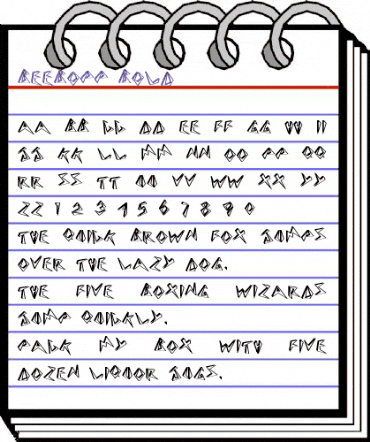 BEEBOPP BOLD
AA BB CC DD EE FF GG HH II
JJ KK LL MM NN OO PP QQ
RR SS TT UU VV WW XX YY
ZZ 1 2 3 4 5 6 7 8 9 0
THE QUICK BROWN FOX JUMPS
OVER THE LAZY DOG.
THE FIVE BOXING WIZARDS
JUMP QUICKLY.
PACK MY BOX WITH FIVE
DOZEN LIQUOR JUGS.